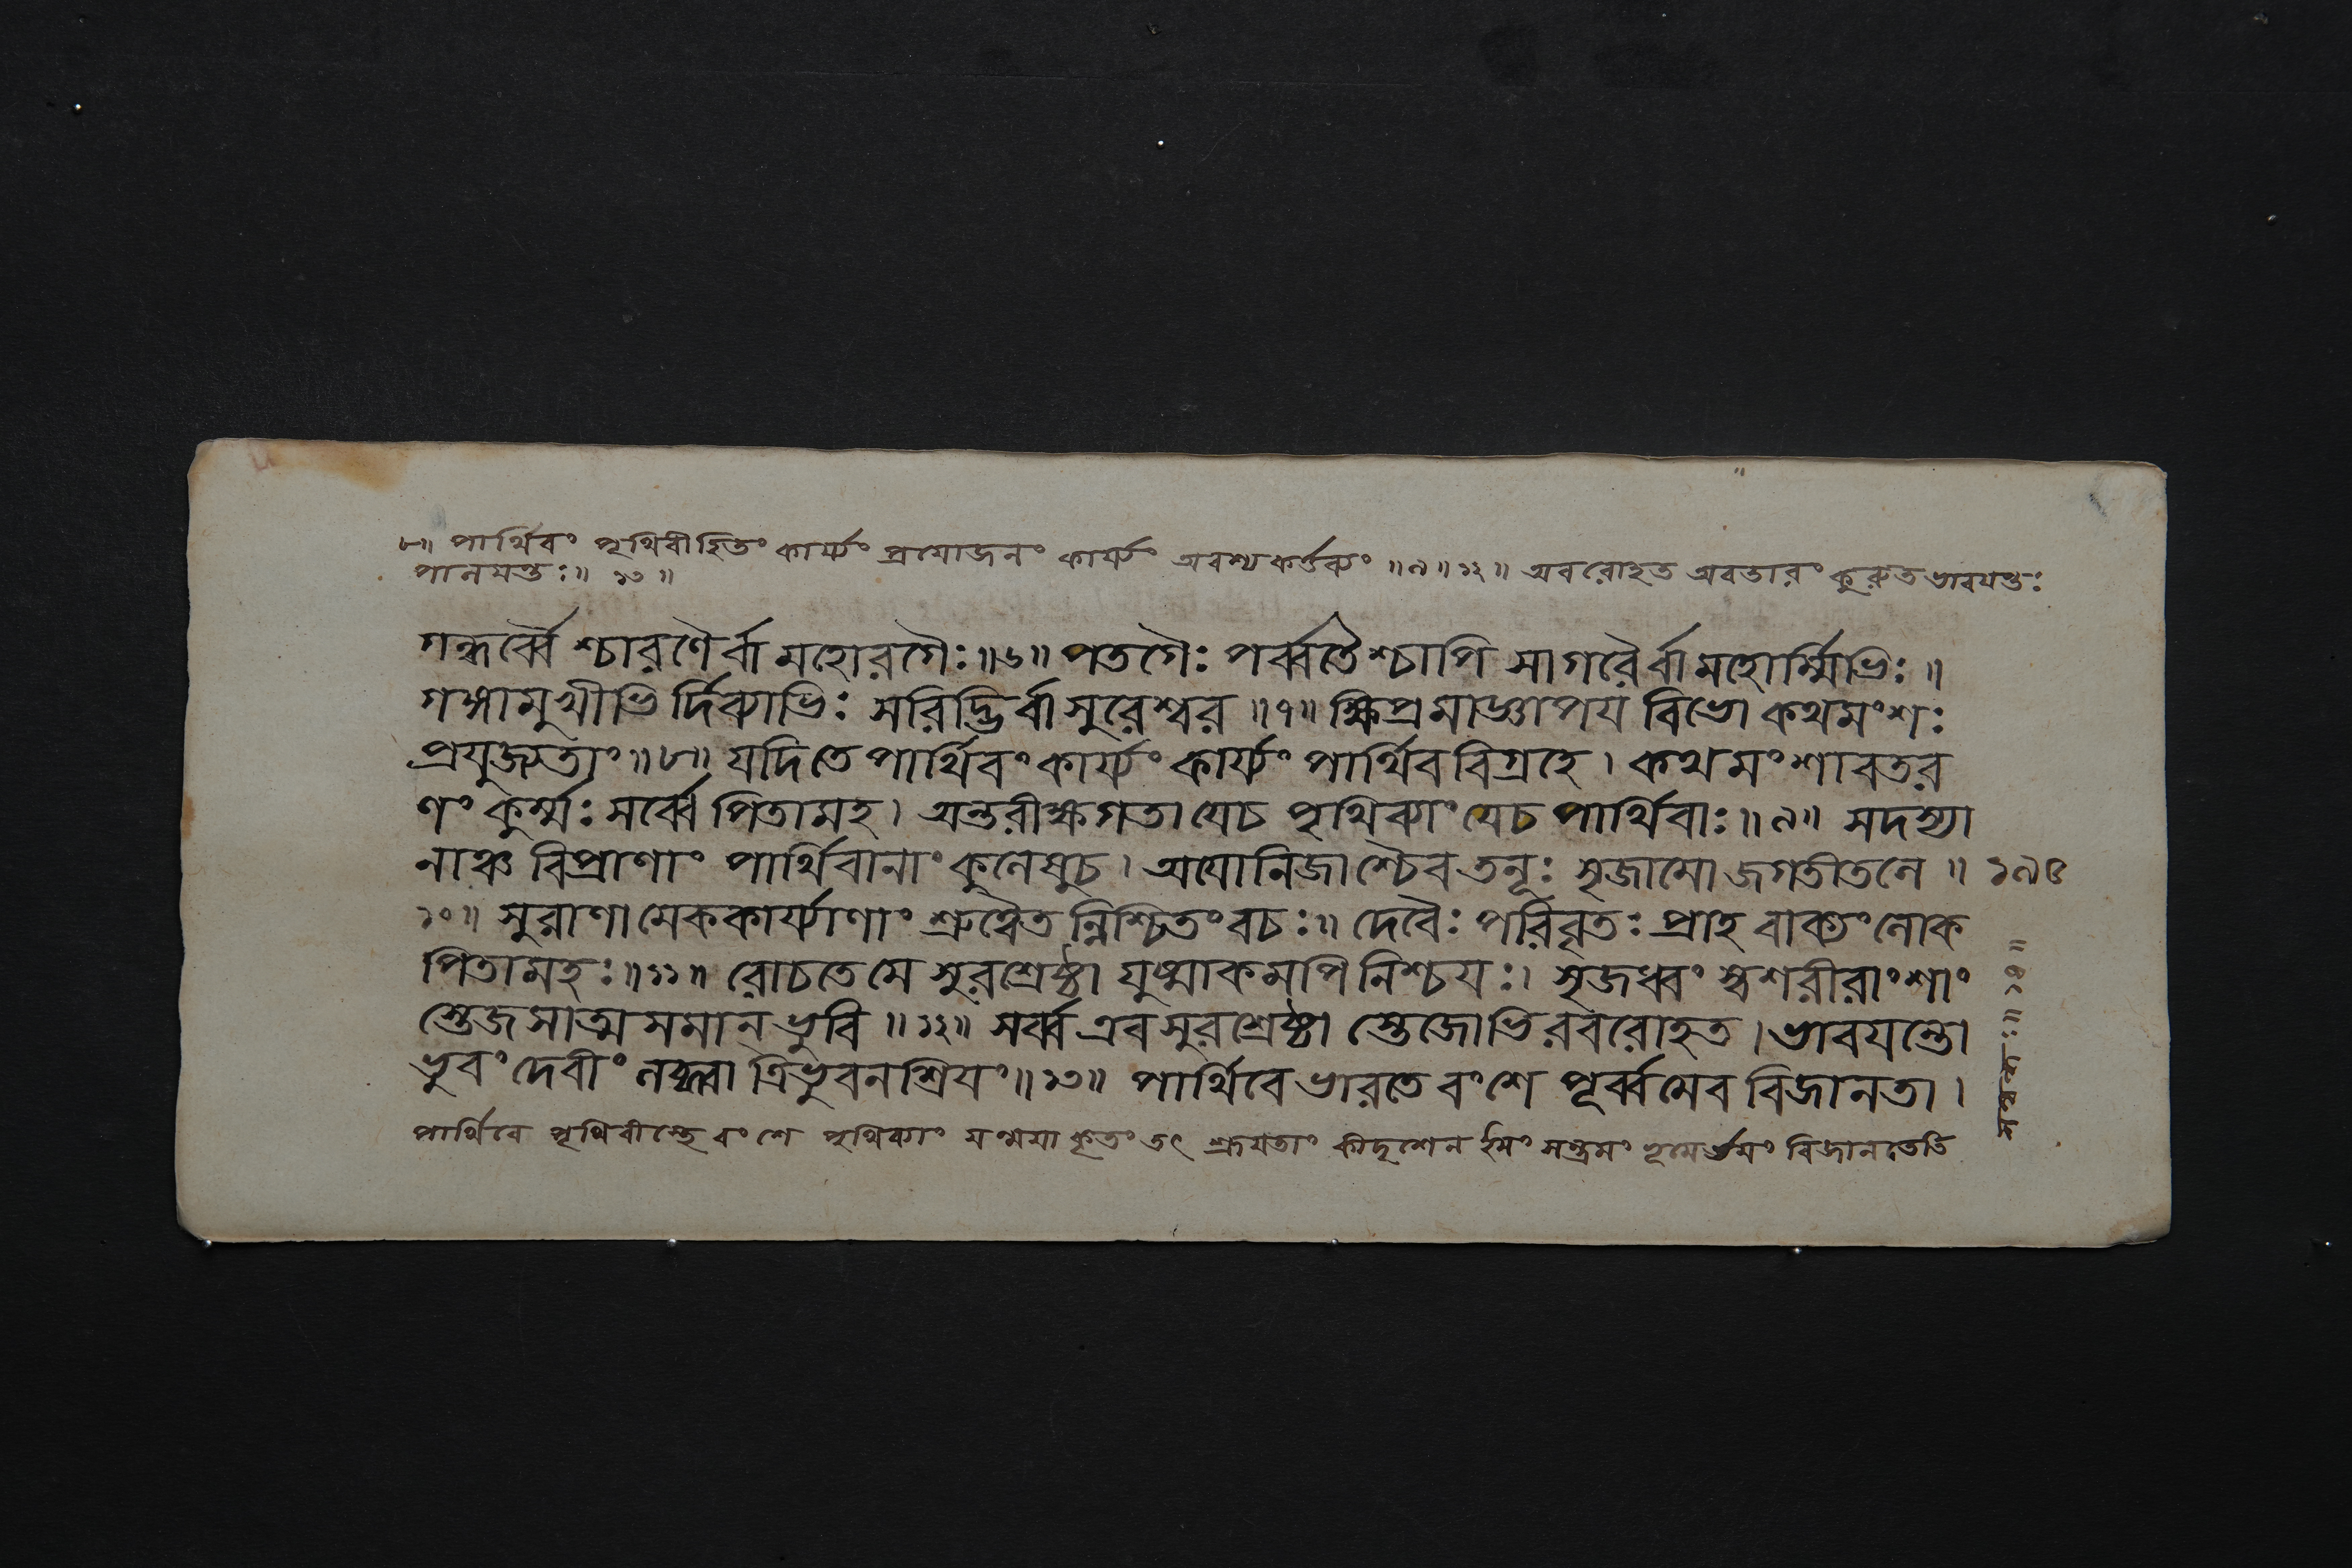 ৮॥ পার্থিবং পৃথিবীহিতং কার্য্যং প্রয়োজনং কার্য্যং অবশ্যকর্ত্তব্যং ॥৯॥১২॥ অবরোহত অবতারং কুরুত ভাবয়ন্তঃ
পালয়ন্তঃ॥ ১৩ ॥
গন্ধর্ব্বৈশ্চারণৈর্বা মহোরগৈঃ॥৬॥ পতগৈঃ পর্ব্বতৈশ্চাপি সাগরৈর্বা মহোর্ম্মিভিঃ॥
গঙ্গামুখীভির্দিব্যাভিঃ সরিদ্ভির্বা সুরেশ্বর ॥৭॥ ক্ষিপ্রমাজ্ঞাপয় বিভো কথমংশঃ
প্রযুজ্যতাং॥৮॥ যদি তে পার্থিবং কার্য্যং কার্য্যং পার্থিববিগ্রহে। কথমংশাবতর
ণং কুর্ম্মঃ সর্ব্বে পিতামহ। অন্তরীক্ষগতা যে চ পৃথিব্যাং যে চ পার্থিবাঃ॥৯॥ সদস্যা
নাঞ্চ বিপ্রাণাং পার্থিবানাং কুলেষু চ। অযোনিজাশ্চৈব তনূঃ সৃজামো জগতীতলে ॥ ১৯৫
১০॥ সুরাণামেককার্য্যাণাং শ্রুত্বৈতন্নিশ্চিতং বচঃ॥ দেবৈঃ পরিবৃতঃ প্রাহ বাক্যং লোক
পিতামহঃ॥১১॥ রোচতে মে সুরশ্রেষ্ঠা যুষ্মাকমপি নিশ্চয়ঃ। সৃজধ্বং স্বশরীরাংশাং
স্তেজসাত্মসমান্ ভুবি ॥১২॥ সর্ব্ব এব সুরশ্রেষ্ঠা স্তেজোভিরবরোহত। ভাবয়ন্তো
ভুবং দেবীং লব্ধ্বা ত্রিভুবনশ্রিয়ং॥১৩॥ পার্থিবে ভারতে বংশে পূর্ব্বমেব বিজানতা।
পার্থিবে পৃথিবীস্থে বংশে পৃথিব্যাং যন্ময়া কৃতং তৎ শ্রূয়তাং কীদৃশেন বিজানতেতি